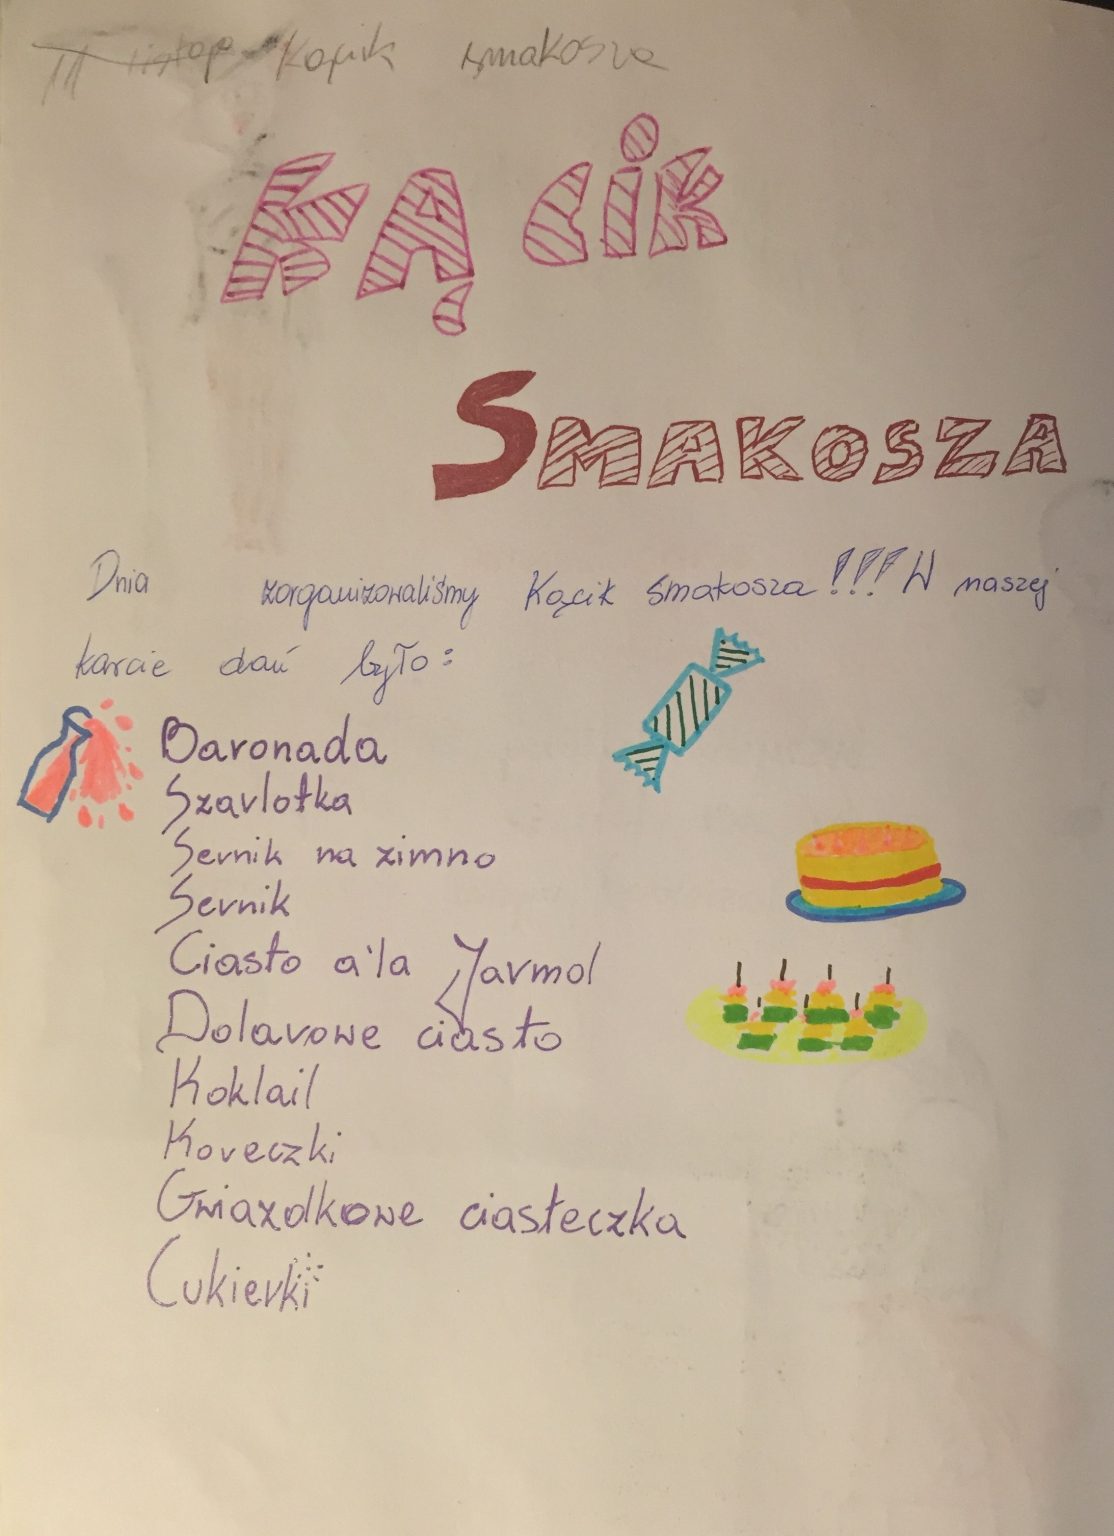 Kącik smakosza
KĄCIK
SMAKOSZA
Dnia zorganizowaliśmy Kącik smakosza!!! W naszej
karcie dań było:
Baronada
Szarlotka
Sernik na zimno
Sernik
Ciasto a'la Jarmol
Dolarowe ciasto
Koktail
Koreczki
Gwiazdkowe ciasteczka
Cukierki